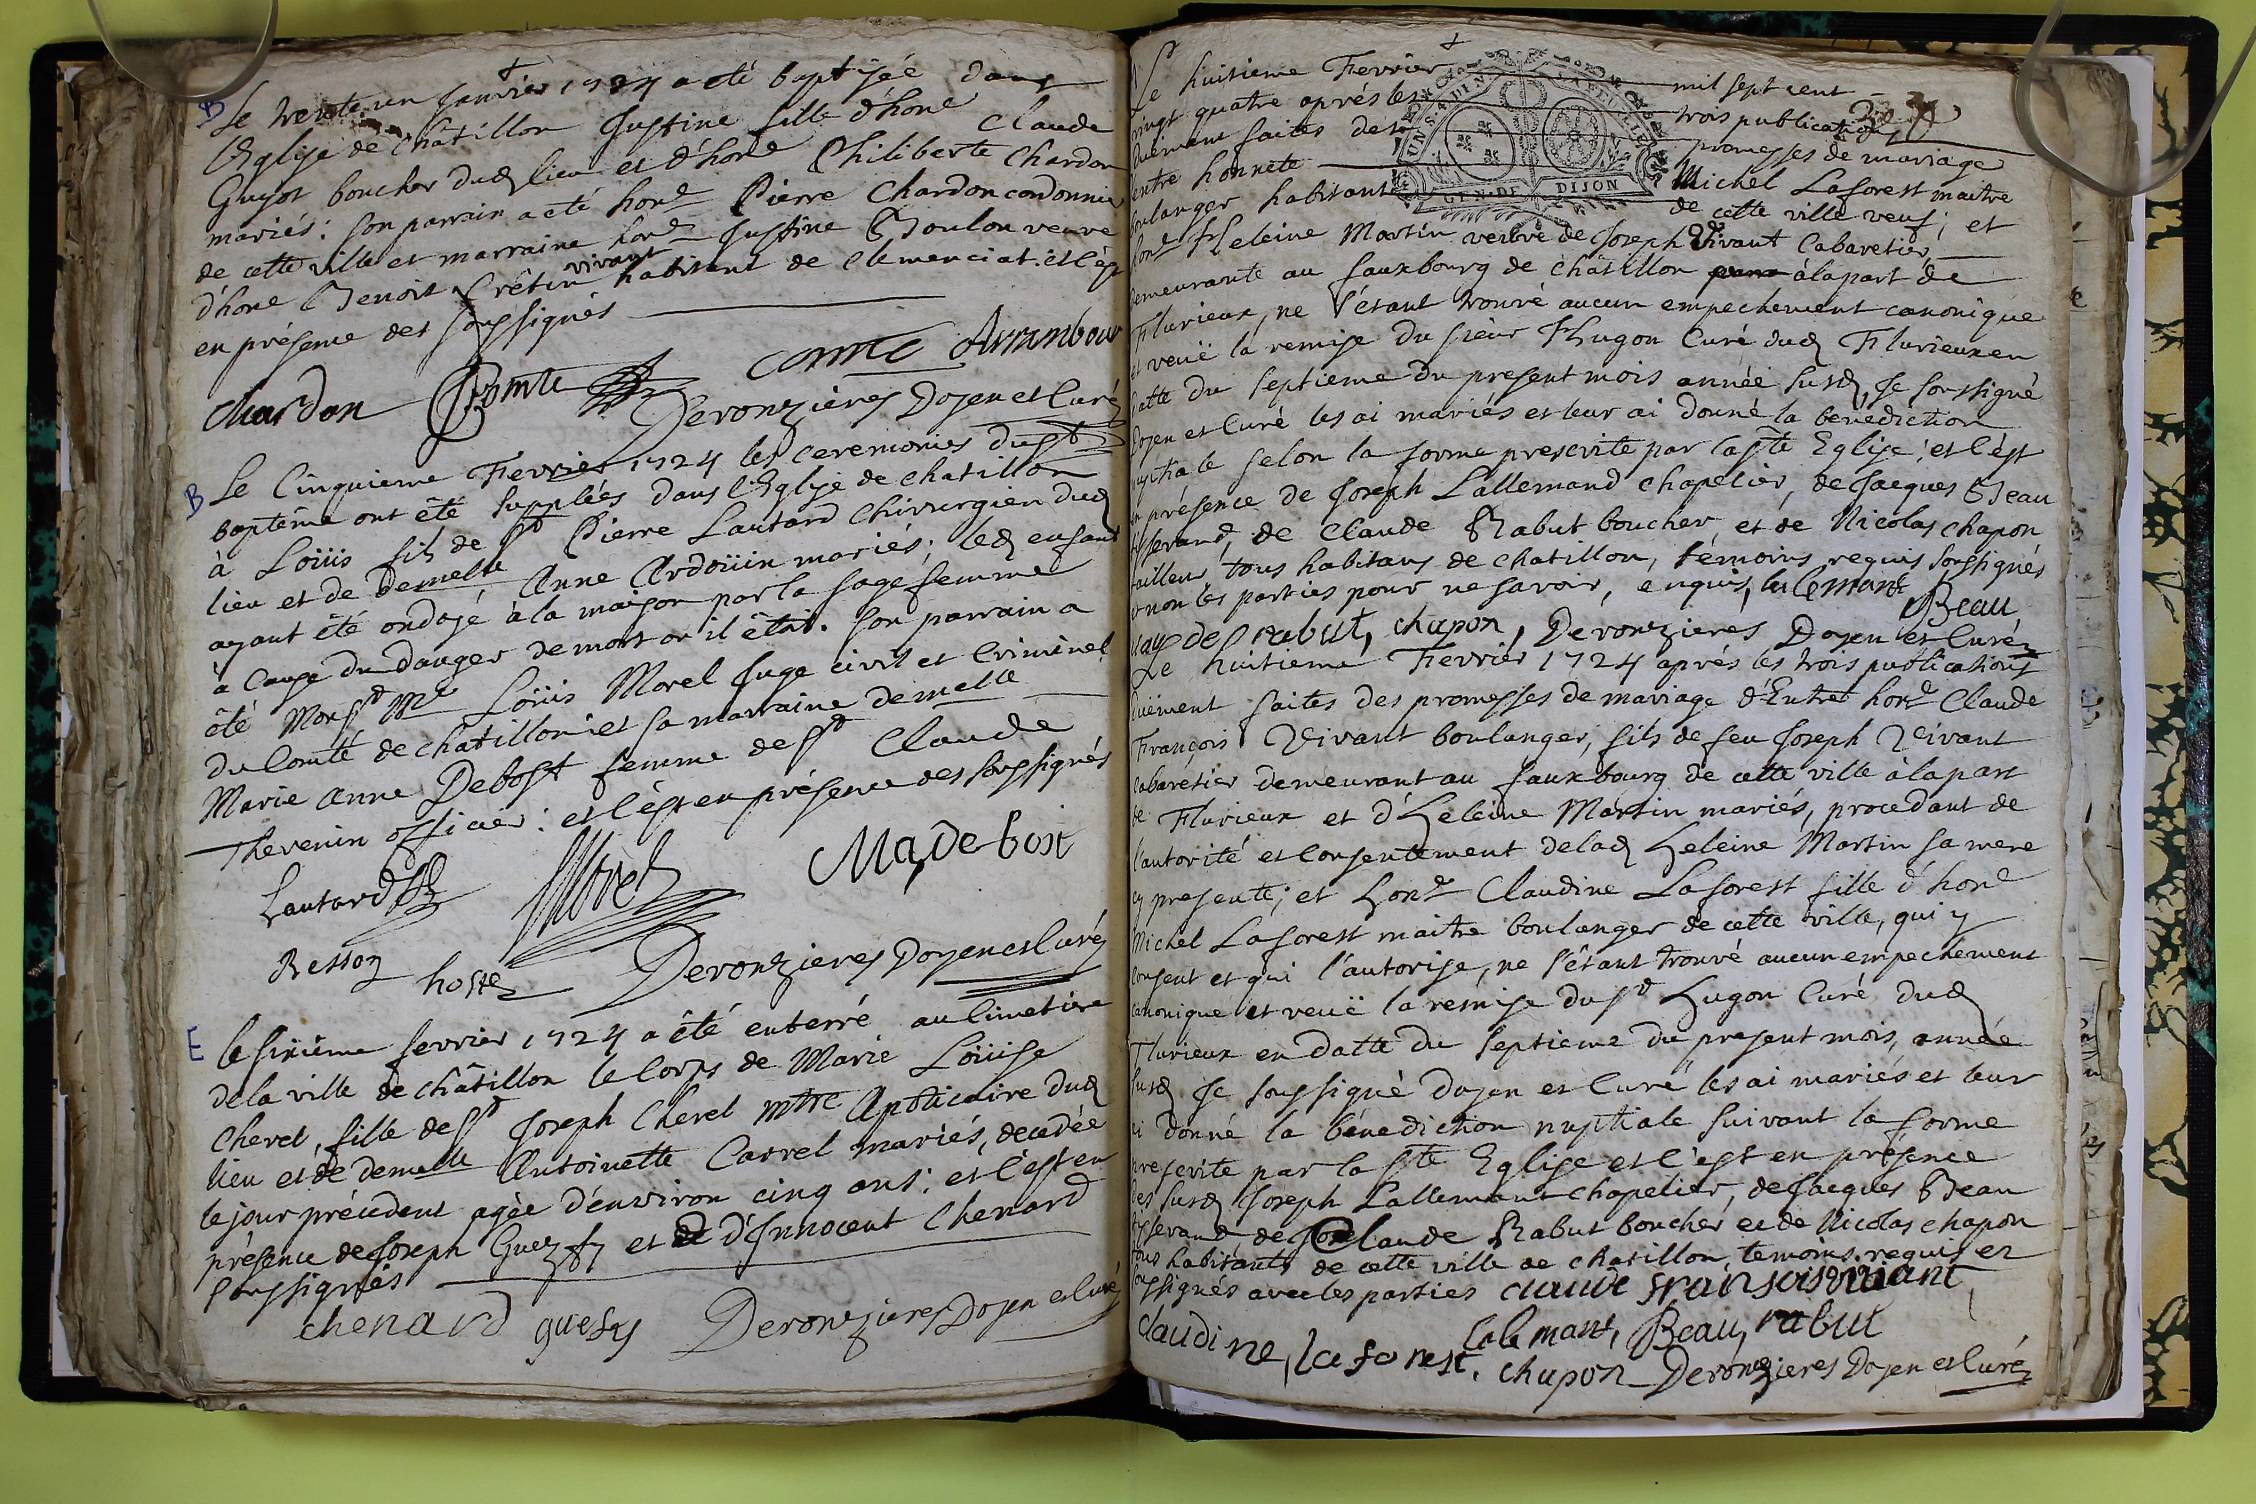 B Le trente un Janvier 1724 a eté baptisée dans
l'Eglise de Châtillon Justine fille d'hone Claude
Guyot boucher dud lieu et d'hone Philiberte Chardon
mariés: son parrain a eté hone Pierre Chardon cordonnier
de cette ville et marraine hone Justine Boulon veuve
d'hone Benoit Crêtin vivant habitant de Clemenciat: et c'est
en présence des soussignés
chardon Comte comte Arrambour
Deronzieres Doyen et Curé
B Le Cinquieme Fevrier 1724 les ceremonies du st
baptême ont été supplées dans l'Eglise de chatillon
à Loüis fils de Sr Pierre Lautard Chirurgien dud
lieu et de demelle Anne Ardoüin mariés; led enfant
ayant été ondoyé à la maison par la sage femme
à cause du danger de mort ou il étoit. son parrain a
été Monsr Mre Loüis Morel Juge civil et Criminel
du Comté de châtillon: et sa marraine demelle
Marie Anne Debost femme de Sr Claude
Thevenin officier: et c'est en présence des soussignés
Lautard Morel Ma, De bost
Resson hoste Deronzieres Doyen et Curé
E le sixième fevrier 1724 a été enterré au Cimetiere
de la ville de châtillon le Corps de Marie Loüise
Cherel, fille de Sr Joseph Cherel mtre Apoticaire dud
lieu et de demelle Antoinette Carrel mariés, decedée
le jour précedent agée d'environ cinq ans: et c'est en
présence de Joseph et d'Innocent Chenard
soussignés
chenard Deronzieres Doyen et Curé
Le huitieme Fevrier mil sept cent
vingt quatre aprés les trois publications
duëment faites des promesses de mariage
entre honnete Michel Laforest maitre
boulanger habitant de cette ville veuf; et
hone Heleine Martin veuve de Joseph Vivant Cabaretier
UN S 4 DEN
GEN DE DIJON
demeurante au fauxbourg de châtillon à la part de
Flurieux, ne s'étant trouvé aucun empechement canonique
et veuë la remise du sieur Hugon Curé dud Flurieux en
datte du septieme du present mois année susd, Je soussigné
Doyen et Curé les ai mariés et leur ai donné la benediction
nuptiale selon la forme prescrite par la ste Eglise: et c'est
en présence de Joseph Lallemand chapelier, de Jacques Beau
tisserand, de Claude Rabut boucher et de Nicolas chapon
tailleur, tous habitans de chatillon, témoins requis soussignés
et non les parties pour ne savoir, enquis, lalemant Beau
claude rabut, chapon, Deronzieres Doyen et Curé
Le huitieme Fevrier 1724 aprés les trois publications
duëment faites des promesses de mariage d'Entre hone Claude
François Vivant boulanger, fils de feu Joseph Vivant
cabaretier demeurant au fauxbourg de cette ville à la part
de Flurieux et d'Heleine Martin mariés, procedant de
l'autorité et Consentement de lad Heleine Martin sa mere
cy presente; et hone Claudine Laforest fille d'hone
Michel Laforest maitre boulanger de cette ville, qui y
consent et qui l'autorise, ne s'étant trouvé aucun empechement
canonique et veuë la remise du Sr Hugon Curé dud
Flurieux en datte du septieme du present mois, année
susd Je soussigné Doyen et Curé les ai mariés et leur
ai donné la bénediction nuptiale suivant la forme
prescrite par la Ste Eglise et c'est en présence
des susd Joseph Lallemant chapelier, de Jacques Beau
tisserand de Claude Rabut boucher et de Nicolas chapon
tous habitants de cette ville de chatillon, temoins requis et
soussignés avec les parties claude fransois vivant
claudine, laforest. lalemant, Beau, rabut
chapon Deronzieres Doyen et Curé